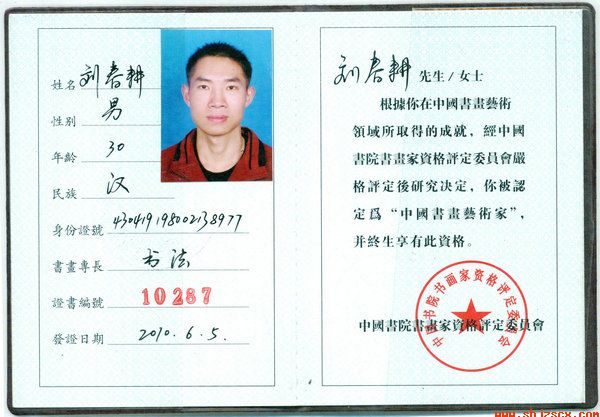 姓名 刘春耕
性别 男
年齡 30
民族 汉
身份證號 430419198002138977
書畫專長 书法
證書編號 10287
發證日期 2010.6.5.
刘春耕 先生/女士
根據你在中國書畫藝術
領域所取得的成就，經中國
書院書畫家資格評定委員會嚴
格評定後研究决定，你被認
定爲“中國書畫藝術家”，
并終生享有此資格。
中国书院书画家资格评定委员会
中國書院書畫家資格評定委員會